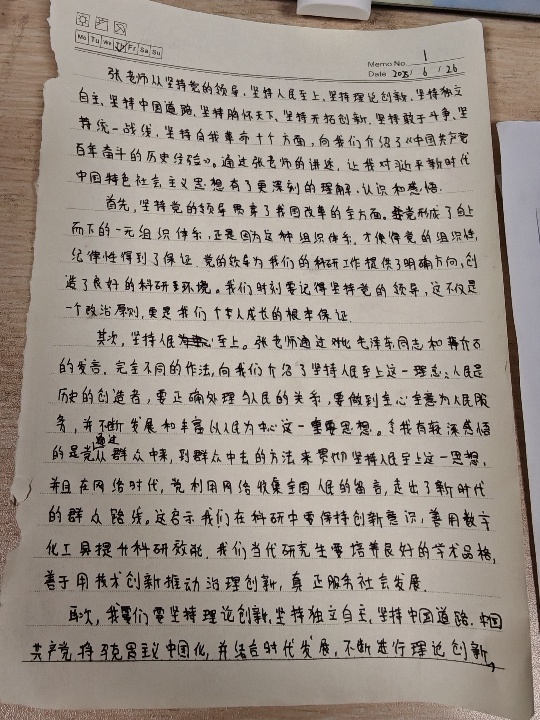 Mo Tu We Th Fr Sa Su
Memo No. 1
Date 2025 / 6 / 26
张老师从坚持党的领导、坚持人民至上、坚持理论创新、坚持独立
自主、坚持中国道路、坚持胸怀天下、坚持开拓创新、坚持敢于斗争、坚
持统一战线、坚持自我革命十个方面,向我们介绍了《中国共产党
百年奋斗的历史经验》。通过张老师的讲述,让我对习近平新时代
中国特色社会主义思想有了更深刻的理解、认识和感悟.
首先,坚持党的领导贯穿了我国改革的全方面。党形成了自上
而下的一元组织体系,正是因为这种组织体系,才使得党的组织性,
纪律性得到了保证.党的领导为我们的科研工作提供了明确方向,创
造了良好的科研环境。我们时刻要记得坚持党的领导,这不仅是
一个政治原则,更是我们个人成长的根本保证.
其次,坚持人民至上。张老师通过对比毛泽东同志和蒋介石
的发言,完全不同的作法,向我们介绍了坚持人民至上这一理念:人民是
历史的创造者,要正确处理与人民的关系,要做到全心全意为人民服
务,并不断发展和丰富以人民为中心这一重要思想。令我有较深感悟
的是党通过从群众中来,到群众中去的方法来贯彻坚持人民至上这一思想,
并且在网络时代,党利用网络收集全国人民的留言,走出了新时代
的群众路线。这启示我们在科研中要保持创新意识,善用数字
化工具提升科研效能.我们当代研究生要培养良好的学术品格,
善于用技术创新推动治理创新,真正服务社会发展.
再次,我们要坚持理论创新,坚持独立自主,坚持中国道路.中国
共产党将马克思主义中国化,并结合时代发展,不断进行理论创新,